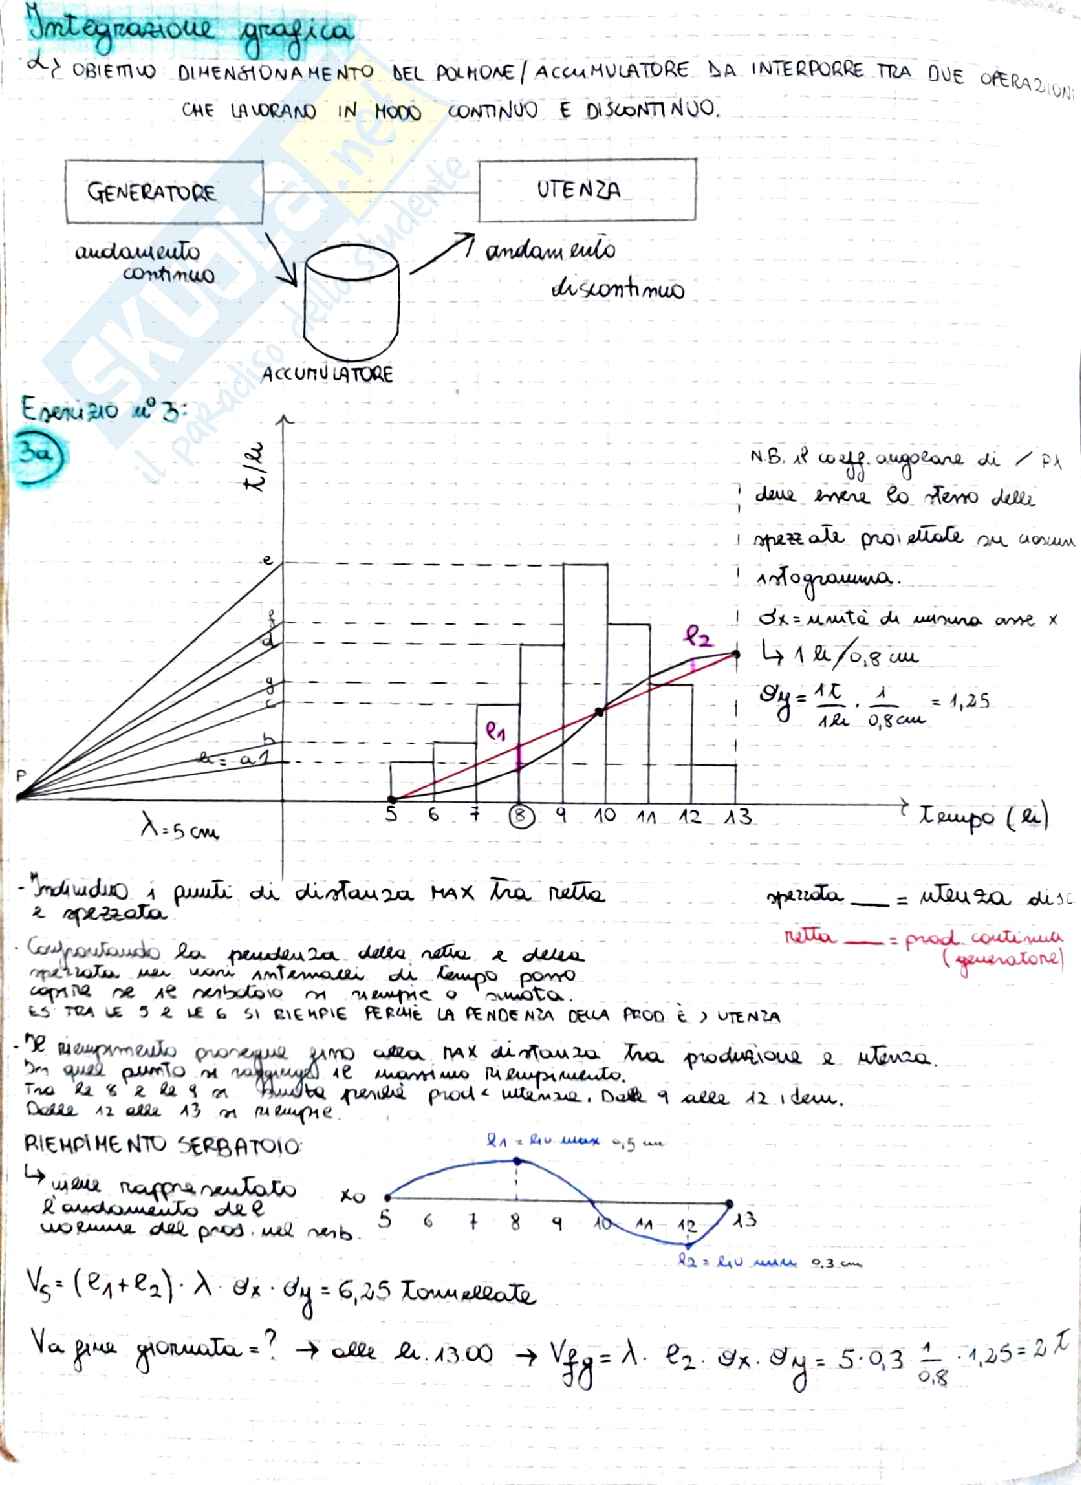 Integrazione grafica
↳ OBIETTIVO DIMENSIONAMENTO DEL POLMONE/ACCUMULATORE DA INTERPORRE TRA DUE OPERAZIONI
CHE LAVORANO IN MODO CONTINUO E DISCONTINUO.
GENERATORE
UTENZA
andamento
continuo
andamento
discontinuo
ACCUMULATORE
SKUOLA.net
il paradiso dello studente
Esercizio n° 3:
3a
t/h
N.B. il coeff. angolare di / P1
deve essere lo stesso delle
spezzate proiettate su ciascun
istogramma.
σx = unità di misura asse x
↳ 1 h/0,8 cm
σy = 1t/1h · 1/0,8cm = 1,25
e
f
d
g
c
b
h = a 1
P
λ = 5 cm
l1
l2
5 6 7 8 9 10 11 12 13
tempo (h)
- Individuo i punti di distanza MAX tra retta
e spezzata
spezzata = utenza disc
retta = prod. continua
(generatore)
- Confrontando la pendenza della retta e della
spezzata nei vari intervalli di tempo posso
capire se il serbatoio si riempie o svuota.
ES TRA LE 5 E LE 6 SI RIEMPIE PERCHÉ LA PENDENZA DELLA PROD È > UTENZA
- Il riempimento prosegue fino alla MAX distanza tra produzione e utenza.
In quel punto si raggiunge il massimo riempimento.
Tra le 8 e le 9 si svuota perché prod < utenza. Dalle 9 alle 12 idem.
Dalle 12 alle 13 si riempie.
RIEMPIMENTO SERBATOIO:
↳ viene rappresentato
l'andamento del
volume del prod. nel serb.
l1 = liv max 0,5 cm
x0
5 6 7 8 9 10 11 12 13
l2 = liv min 0,3 cm
Vs = (l1+l2) · λ · σx · σy = 6,25 tonnellate
V a fine giornata = ? → alle h. 13.00 → Vfg = λ · l2 · σx · σy = 5 · 0,3 1/0,8 · 1,25 = 2 t